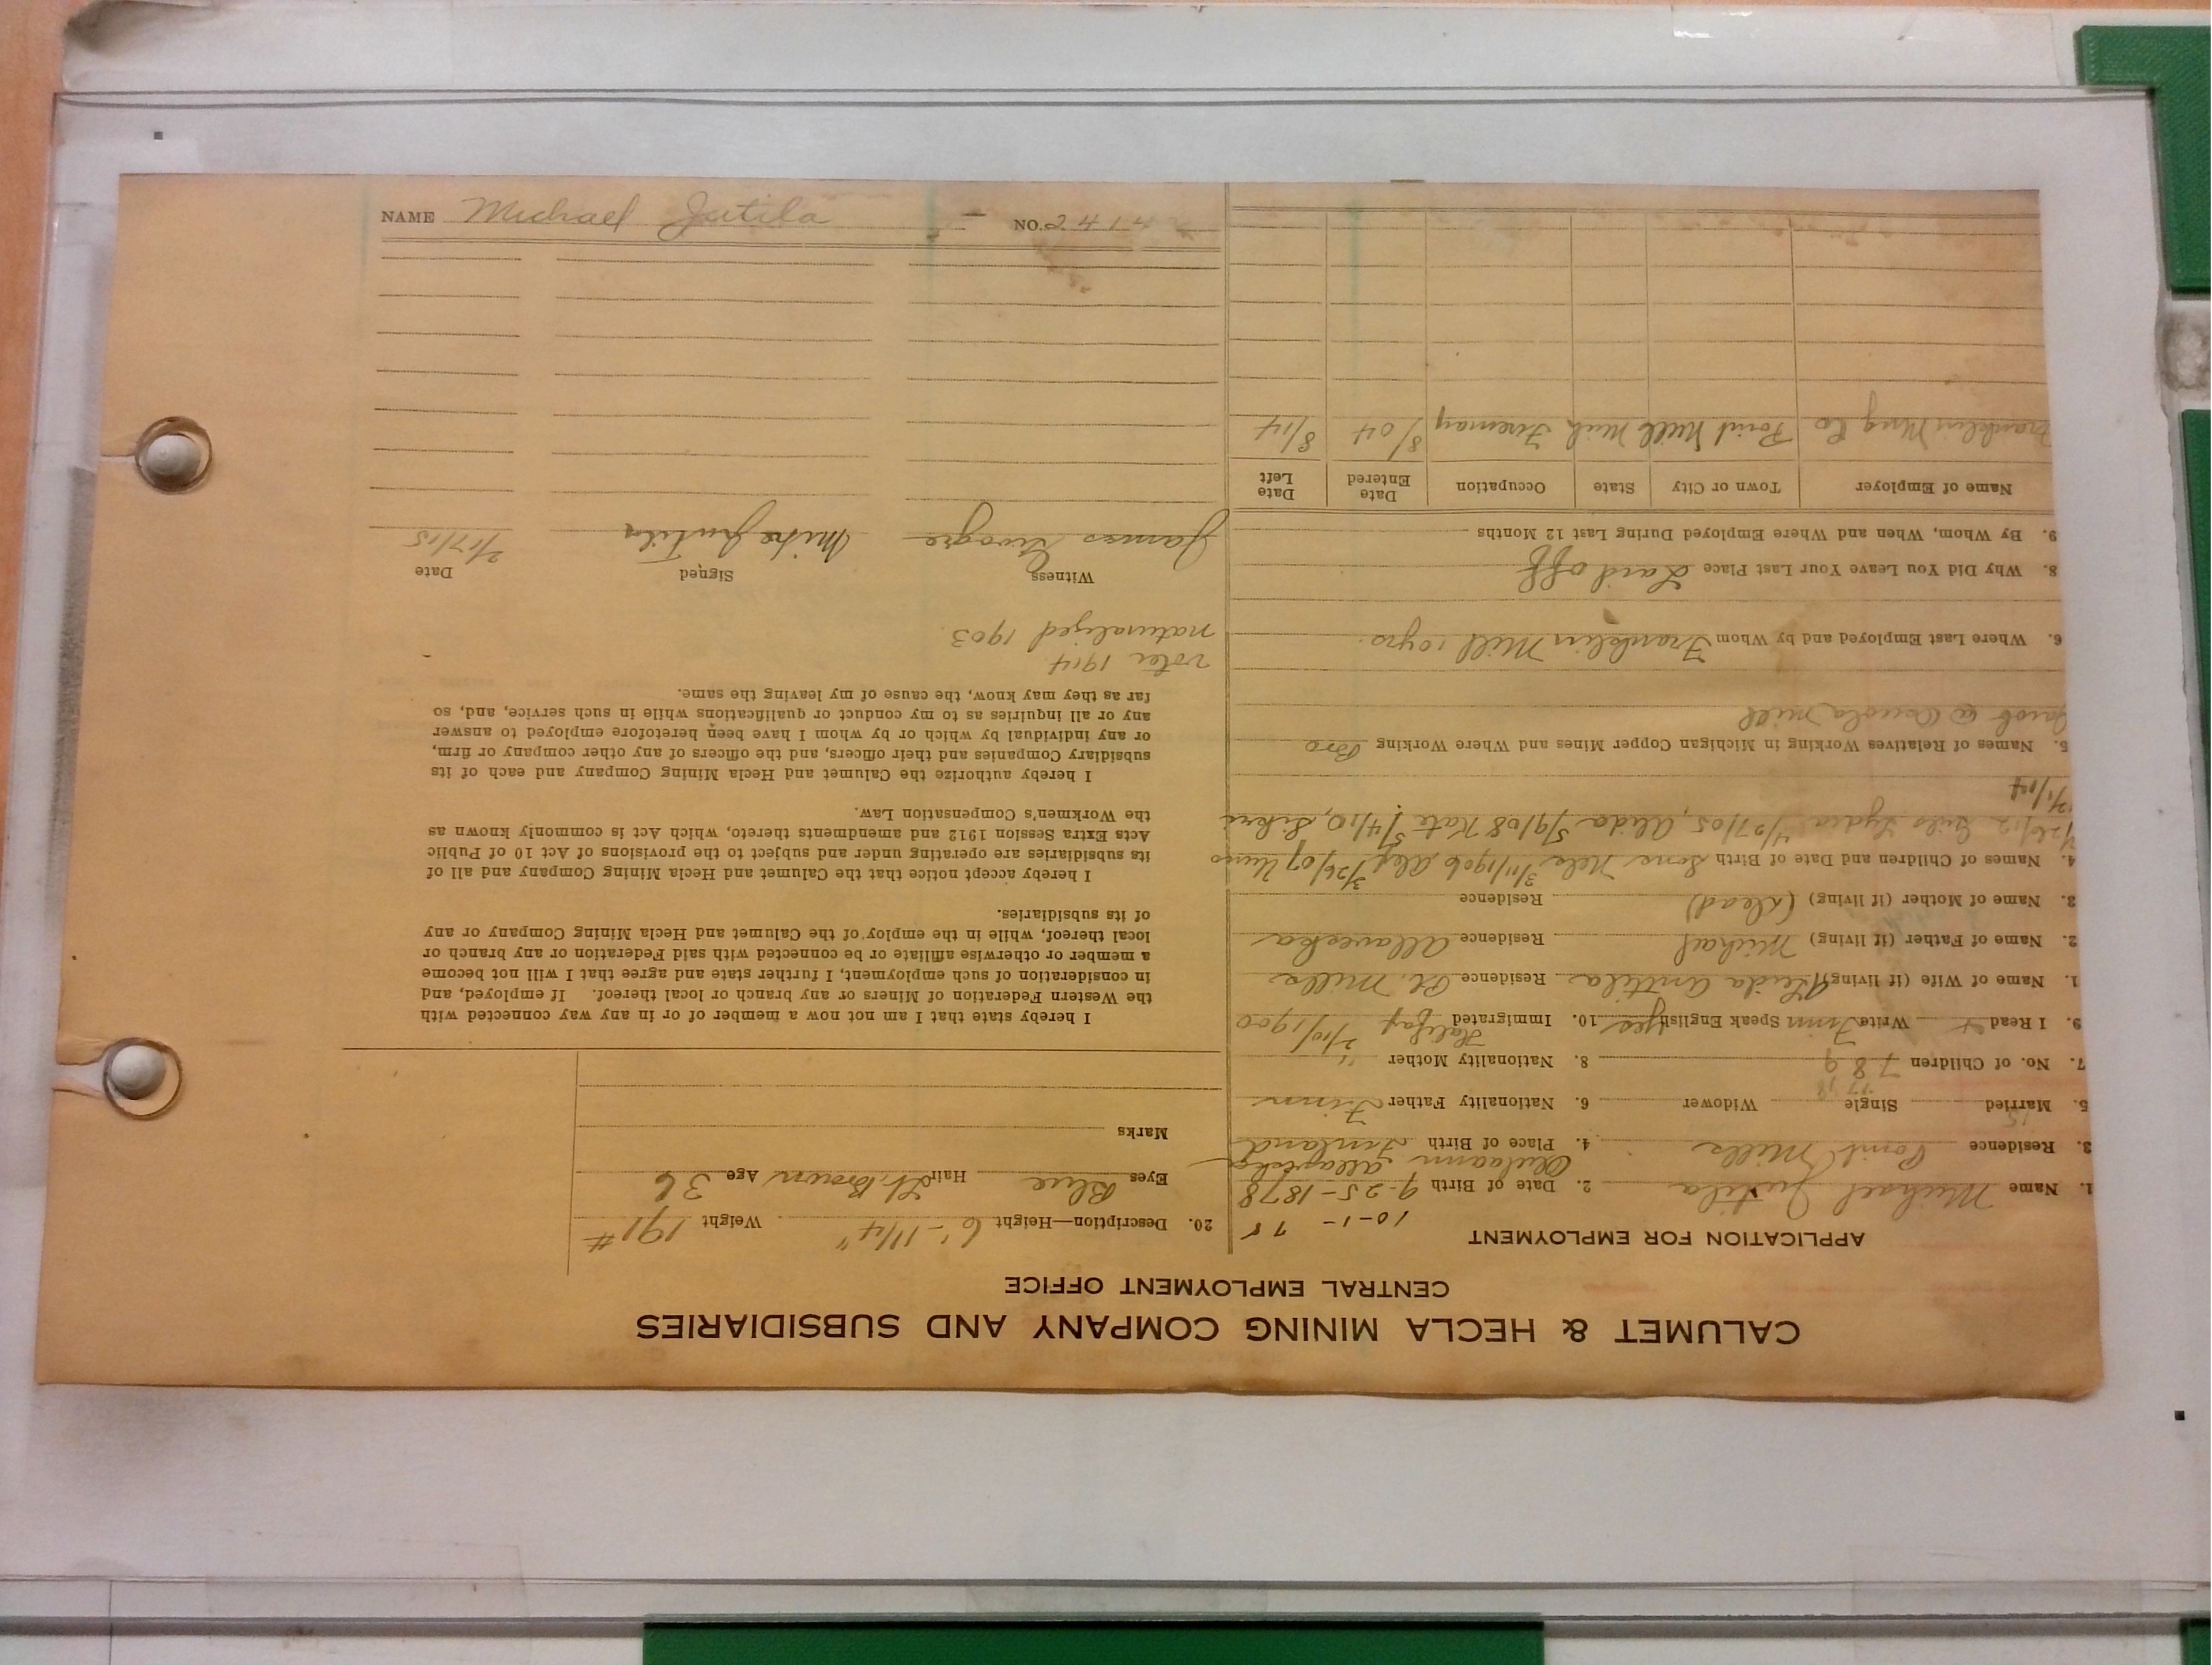 CALUMET & HECLA MINING COMPANY AND SUBSIDIARIES
CENTRAL EMPLOYMENT OFFICE
APPLICATION FOR EMPLOYMENT
10-1-
1. Name Michael Jutila 2. Date of Birth 9-25-1878
3. Residence Point Mills 4. Place of Birth Finland
5. Married Single Widower 6. Nationality Father Finn
7. No. of Children 7 8 9 8. Nationality Mother "
9. I Read Write Finn Speak English Yes 10. Immigrated Halifax 2/10/1900
1. Name of Wife (if living) Anttila Residence Pt. Mills
2. Name of Father (if living) Michal Residence
3. Name of Mother (if living) (dead) Residence
4. Names of Children and Date of Birth Sons 3/11/1906 3/26/07
Lydia 4/27/05, Alida 5/9/08 Kate 5/4/10,
5. Names of Relatives Working in Michigan Copper Mines and Where Working Bro
Jacob @ Osceola Mill
6. Where Last Employed and by Whom Franklin Mill 10 yrs.
8. Why Did You Leave Your Last Place Laid off
9. By Whom, When and Where Employed During Last 12 Months
Name of Employer Town or City State Occupation Date Entered Date Left
Franklin Mng Co Point Mill Mich Fireman 8/04 8/14
20. Description—Height 6'-1 1/4" Weight 191#
Eyes Blue Hair Lt. Brown Age 36
Marks
I hereby state that I am not now a member of or in any way connected with
the Western Federation of Miners or any branch or local thereof. If employed, and
in consideration of such employment, I further state and agree that I will not become
a member or otherwise affiliate or be connected with said Federation or any branch or
local thereof, while in the employ of the Calumet and Hecla Mining Company or any
of its subsidiaries.
I hereby accept notice that the Calumet and Hecla Mining Company and all of
its subsidiaries are operating under and subject to the provisions of Act 10 of Public
Acts Extra Session 1912 and amendments thereto, which Act is commonly known as
the Workmen's Compensation Law.
I hereby authorize the Calumet and Hecla Mining Company and each of its
subsidiary Companies and their officers, and the officers of any other company or firm,
or any individual by which or by whom I have been heretofore employed to answer
any or all inquiries as to my conduct or qualifications while in such service, and, so
far as they may know, the cause of my leaving the same.
voter 1914
naturalized 1903
Witness Signed Date
James Mike Jutila 2/17/15
NAME Michael Jutila NO. 2414